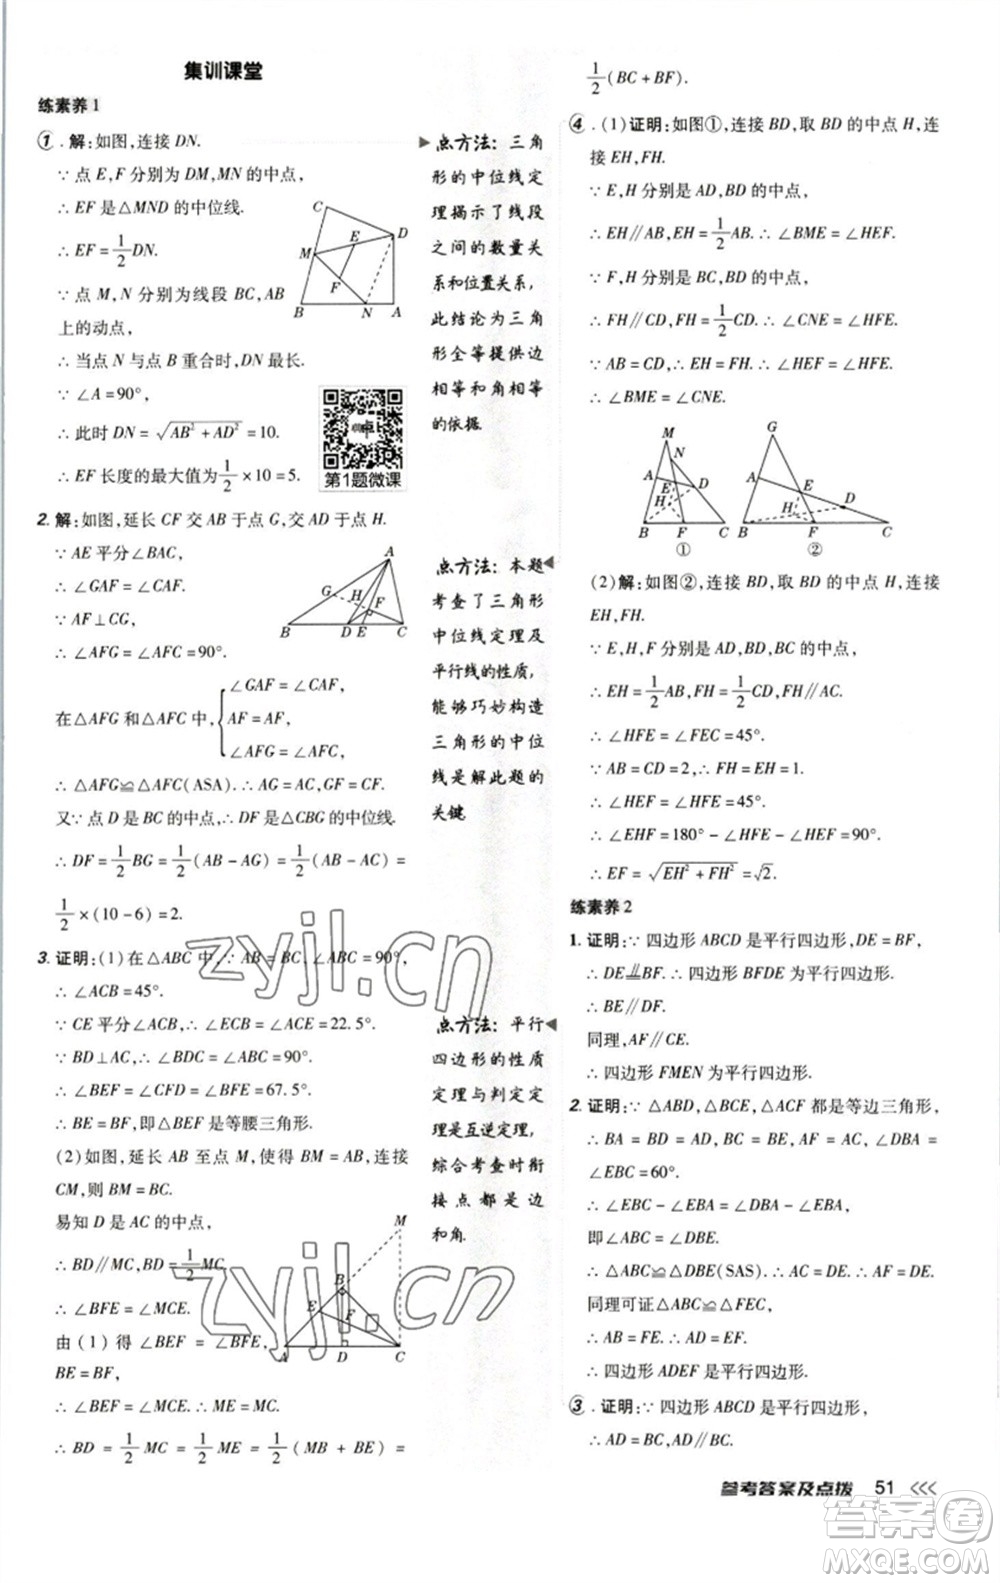 集训课堂
练素养1
①.解:如图,连接DN.
∵点E,F分别为DM,MN的中点,
∴EF是△MND的中位线.
∴EF=1/2DN.
∵点M,N分别为线段BC,AB
上的动点,
∴当点N与点B重合时,DN最长.
∵∠A=90°,
∴此时DN=√(AB²+AD²)=10.
∴EF长度的最大值为1/2×10=5.
C
D
E
M
F
B N A
第1题微课
2.解:如图,延长CF交AB于点G,交AD于点H.
∵AE平分∠BAC,
∴∠GAF=∠CAF.
∵AF⊥CG,
∴∠AFG=∠AFC=90°.
在△AFG和△AFC中,{∠GAF=∠CAF,
AF=AF,
∠AFG=∠AFC,
∴△AFG≌△AFC(ASA).∴AG=AC,GF=CF.
又∵点D是BC的中点,∴DF是△CBG的中位线.
∴DF=1/2BG=1/2(AB-AG)=1/2(AB-AC)=
1/2×(10-6)=2.
A
G H F
B D E C
3.证明:(1)在△ABC中,∵AB=BC,∠ABC=90°,
∴∠ACB=45°.
∵CE平分∠ACB,∴∠ECB=∠ACE=22.5°.
∵BD⊥AC,∴∠BDC=∠ABC=90°.
∴∠BEF=∠CFD=∠BFE=67.5°.
∴BE=BF,即△BEF是等腰三角形.
(2)如图,延长AB至点M,使得BM=AB,连接
CM,则BM=BC.
易知D是AC的中点,
∴BD∥MC,BD=1/2MC.
∴∠BFE=∠MCE.
由(1)得∠BEF=∠BFE,
BE=BF.
∴∠BEF=∠MCE.∴ME=MC.
∴BD=1/2MC=1/2ME=1/2(MB+BE)=
M
B
E F
A D C
点方法:三角
形的中位线定
理揭示了线段
之间的数量关
系和位置关系,
此结论为三角
形全等提供边
相等和角相等
的依据.
点方法:本题
考查了三角形
中位线定理及
平行线的性质,
能够巧妙构造
三角形的中位
线是解此题的
关键.
点方法:平行
四边形的性质
定理与判定定
理是互逆定理,
综合考查时衔
接点都是边
和角.
1/2(BC+BF).
④.(1)证明:如图①,连接BD,取BD的中点H,连
接EH,FH.
∵E,H分别是AD,BD的中点,
∴EH∥AB,EH=1/2AB.∴∠BME=∠HEF.
∵F,H分别是BC,BD的中点,
∴FH∥CD,FH=1/2CD.∴∠CNE=∠HFE.
∵AB=CD,∴EH=FH.∴∠HEF=∠HFE.
∴∠BME=∠CNE.
M
N
A E D
H
B F C
①
G
A E
H D
B F C
②
(2)解:如图②,连接BD,取BD的中点H,连接
EH,FH.
∵E,H,F分别为AD,BD,BC的中点,
∴EH=1/2AB,FH=1/2CD,FH∥AC.
∴∠HFE=∠FEC=45°.
∵AB=CD=2,∴FH=EH=1.
∴∠HEF=∠HFE=45°.
∴∠EHF=180°-∠HFE-∠HEF=90°.
∴EF=√(EH²+FH²)=√2.
练素养2
1.证明:∵四边形ABCD是平行四边形,DE=BF,
∴DE∥BF.∴四边形BFDE为平行四边形.
∴BE∥DF.
同理,AF∥CE.
∴四边形FMEN为平行四边形.
2.证明:∵△ABD,△BCE,△ACF都是等边三角形,
∴BA=BD,BC=BE,AC=AF,∠DBA=
∠EBC=60°.
∴∠EBC-∠EBA=∠DBA-∠EBA,
即∠ABC=∠DBE.
∴△ABC≌△DBE(SAS).∴AF=AC=DE.
同理可证△ABC≌△FEC,
∴AB=FE=AD.
∴四边形ADEF是平行四边形.
③.证明:∵四边形ABCD是平行四边形,
∴AD=BC,AD∥BC.
参考答案及点拨 51
zyjl.cn
zyjl.cn
答案圈
MXQE.COM